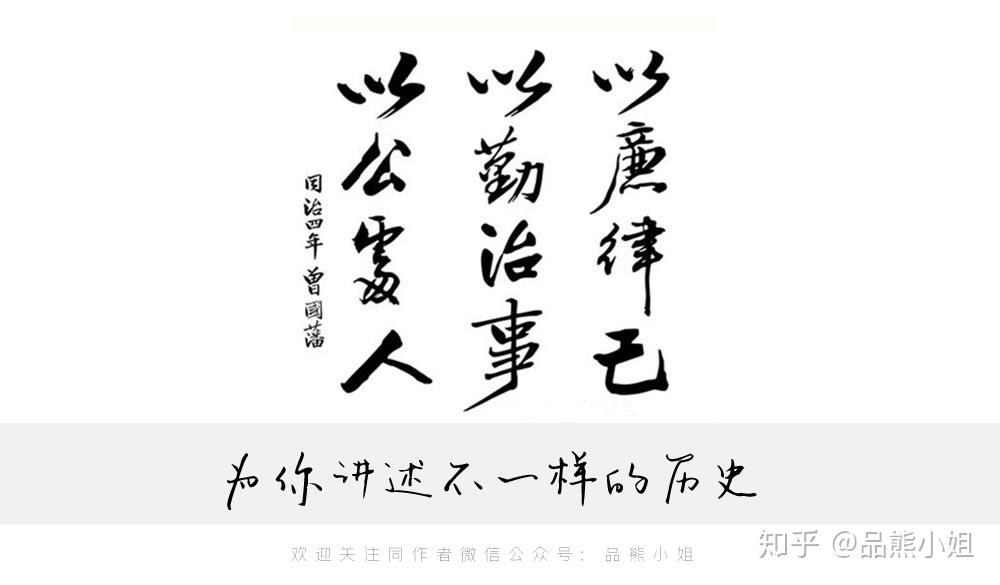 以廉律己
以勤治事
以公處人
同治四年 曾國藩
为你讲述不一样的历史
欢迎关注同作者微信公众号：品熊小姐
知乎 @品熊小姐